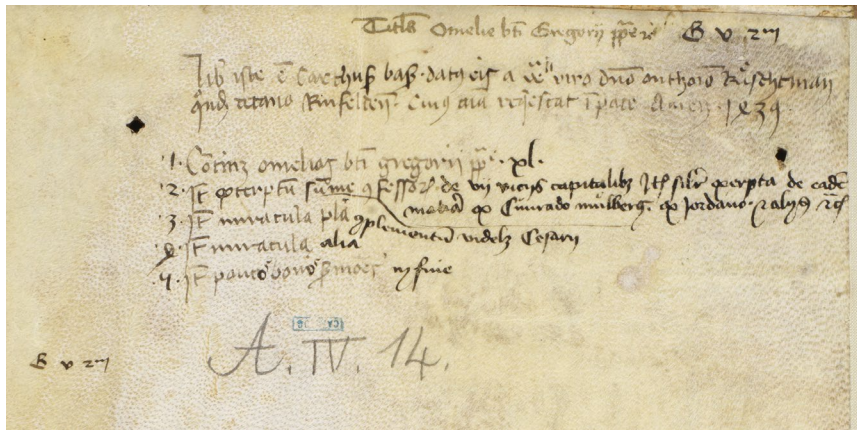 Titls Omelie bti Gregorii ppe B v 2m
Lib iste e Carthus bas. datus eis a viro dno anthoio Rüschtman
qnd decano Rinfelden. Cuius aia reqescat i pace Amen 1439
1. Cotinz omelias bti gregorii ppe. xl.
2. It excerptu sume 9fessor de vij vicijs capitalibz Itē silr excerpta de eadē
materia ex Cunrado mulberg. ex Jordano. 2 alijs
3. It miracula plā 9plementum videlz Cesarij
4. It miracula alia
5. It pauco bono smões in fine
A. IV. 14.
B v 2m